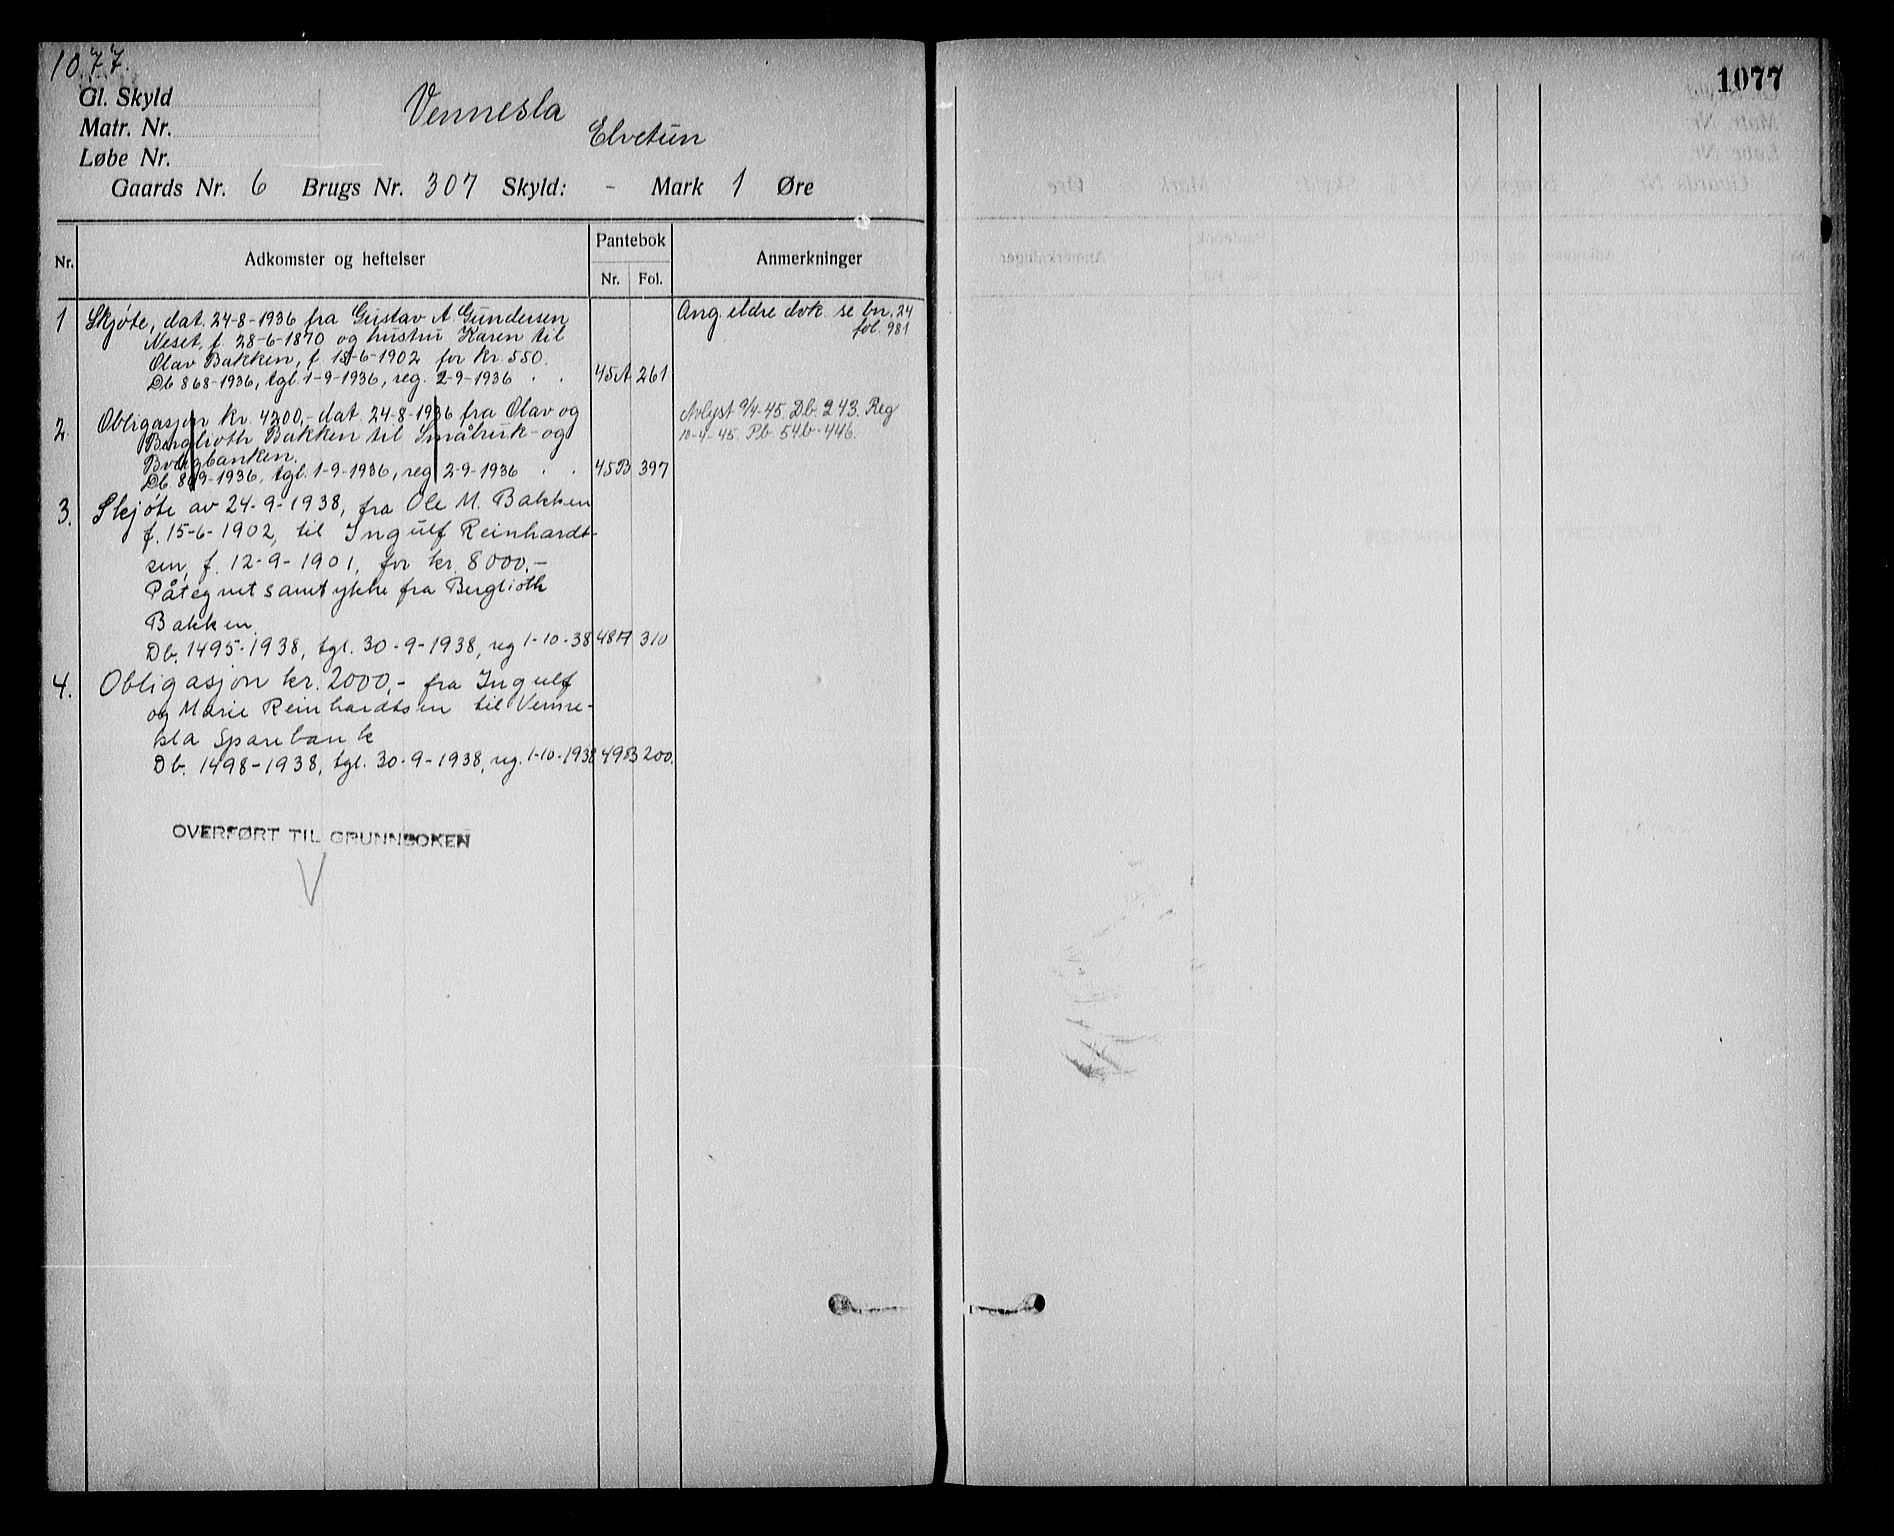 1077.
1077
Gl. Skyld
Vennesla
Matr. Nr.
Elvetun
Løbe Nr.
Gaards Nr. 6 Brugs Nr. 307 Skyld: - Mark 1 Øre
Nr. Adkomster og heftelser Pantebok Anmerkninger
Nr. Fol.
1 Skjøte, dat. 24-8-1936 fra Gustav A. Gundersen Ang. eldre dok. se bn. 24
Neset, f. 28-6-1870 og hustru Karen til fol. 981
Olav Bakken, f. 15-6-1902 for kr. 550.
Db 868-1936, tgl. 1-9-1936, reg. 2-9-1936 . . 45A 261
2 Obligasjon kr. 4200,- dat. 24-8-1936 fra Olav og Avlyst 9/4-45. Db. 243. Reg
Berglioth Bakken til Småbruk- og 10-4-45. Pb. 54b-446.
Boligbanken.
Db 869-1936, tgl. 1-9-1936, reg 2-9-1936 . . 45B 397
3. Skjøte av 24-9-1938, fra Ole M. Bakken
f. 15-6-1902, til Ingulf Reinhardt-
sen, f. 12-9-1901, for kr. 8000,-
Påtegnet samtykke fra Berglioth
Bakken.
Db. 1495-1938, tgl. 30-9-1938, reg 1-10-38 48A 310
4. Obligasjon kr. 2000,- fra Ingulf
og Marie Reinhardtsen til Venne-
sla Sparebank
Db. 1498-1938, tgl. 30-9-1938, reg. 1-10-1938 49B 200.
OVERFØRT TIL GRUNNBOKEN
V